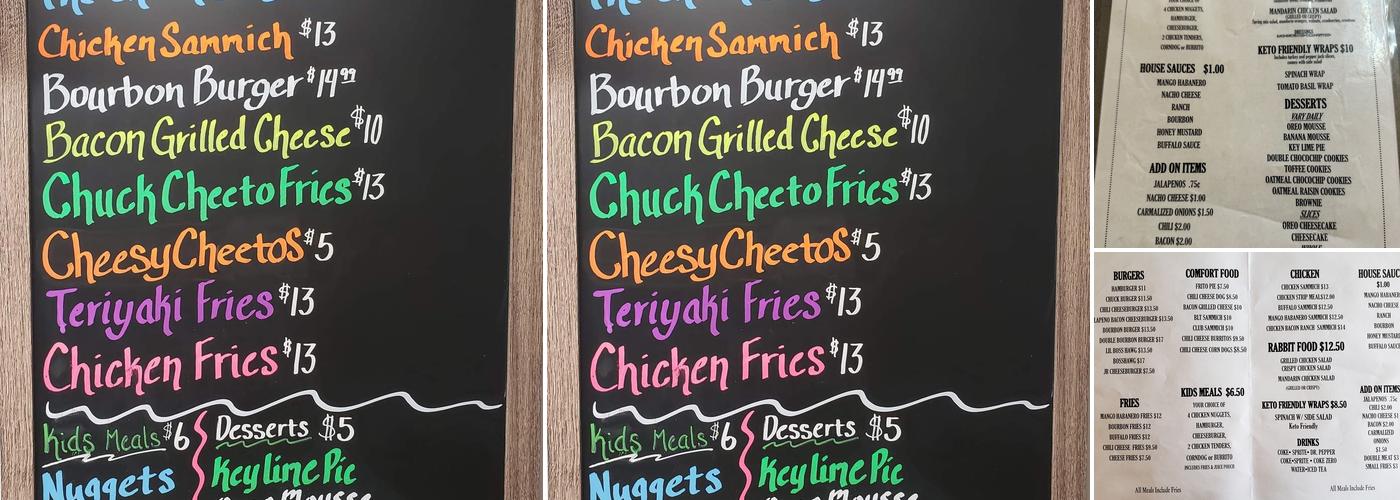 Chicken Sammich $13
Bourbon Burger $14.99
Bacon Grilled Cheese $10
Chuck Cheeto Fries $13
Cheesy Cheetos $5
Teriyaki Fries $13
Chicken Fries $13
Kids Meals $6
Nuggets
Desserts $5
Key lime Pie
Mousse
Chicken Sammich $13
Bourbon Burger $14.99
Bacon Grilled Cheese $10
Chuck Cheeto Fries $13
Cheesy Cheetos $5
Teriyaki Fries $13
Chicken Fries $13
Kids Meals $6
Nuggets
Desserts $5
Key lime Pie
Mousse
YOUR CHOICE OF
4 CHICKEN NUGGETS,
HAMBURGER,
CHEESEBURGER,
2 CHICKEN TENDERS,
CORNDOG or BURRITO
HOUSE SAUCES $1.00
MANGO HABANERO
NACHO CHEESE
RANCH
BOURBON
HONEY MUSTARD
BUFFALO SAUCE
ADD ON ITEMS
JALAPENOS .75¢
NACHO CHEESE $1.00
CARMALIZED ONIONS $1.50
CHILI $2.00
BACON $2.00
MANDARIN CHICKEN SALAD
(GRILLED OR CRISPY)
KETO FRIENDLY WRAPS $10
SPINACH WRAP
TOMATO BASIL WRAP
DESSERTS
VARY DAILY
OREO MOUSSE
BANANA MOUSSE
KEY LIME PIE
DOUBLE CHOCOCHIP COOKIES
TOFFEE COOKIES
OATMEAL CHOCOCHIP COOKIES
OATMEAL RAISIN COOKIES
BROWNIE
SLICES
OREO CHEESECAKE
CHEESECAKE
BURGERS
HAMBURGER $11
CHUCK BURGER $11.50
CHILI CHEESEBURGER $13.50
BACON CHEESEBURGER $13.50
BOURBON BURGER $13.50
DOUBLE BOURBON BURGER $17
LIL BOSS HAWG $13.50
BOSSHAWG $17
JR CHEESEBURGER $7.50
FRIES
MANGO HABANERO FRIES $12
BOURBON FRIES $12
BUFFALO FRIES $12
CHILI CHEESE FRIES $9.50
CHEESE FRIES $7.50
COMFORT FOOD
FRITO PIE $7.50
CHILI CHEESE DOG $8.50
BACON GRILLED CHEESE $10
BLT SAMMICH $10
CLUB SAMMICH $10
CHILI CHEESE BURRITOS $9.50
CHILI CHEESE CORN DOGS $8.50
KIDS MEALS $6.50
YOUR CHOICE OF
4 CHICKEN NUGGETS,
HAMBURGER,
CHEESEBURGER,
2 CHICKEN TENDERS,
CORNDOG or BURRITO
INCLUDES FRIES & JUICE POUCH
All Meals Include Fries
CHICKEN
CHICKEN SAMMICH $13
CHICKEN STRIP MEAL $12.00
BUFFALO SAMMICH $12.50
MANGO HABANERO SAMMICH $12.50
CHICKEN BACON RANCH SAMMICH $14
RABBIT FOOD $12.50
GRILLED CHICKEN SALAD
CRISPY CHICKEN SALAD
MANDARIN CHICKEN SALAD
(GRILLED OR CRISPY)
KETO FRIENDLY WRAPS $8.50
SPINACH W/ SIDE SALAD
Keto Friendly
DRINKS
COKE • SPRITE • DR. PEPPER
COKE • SPRITE • COKE ZERO
WATER • ICED TEA
All Meals Include Fries
HOUSE SAUC
$1.00
MANGO HABANERO
NACHO CHEESE
RANCH
BOURBON
HONEY MUSTARD
BUFFALO SAUCE
ADD ON ITEMS
JALAPENOS .75¢
CHILI $2.00
NACHO CHEESE $1
BACON $2.00
CARMALIZED
ONIONS
$1.50
DOUBLE MEAT $3
SMALL FRIES $3